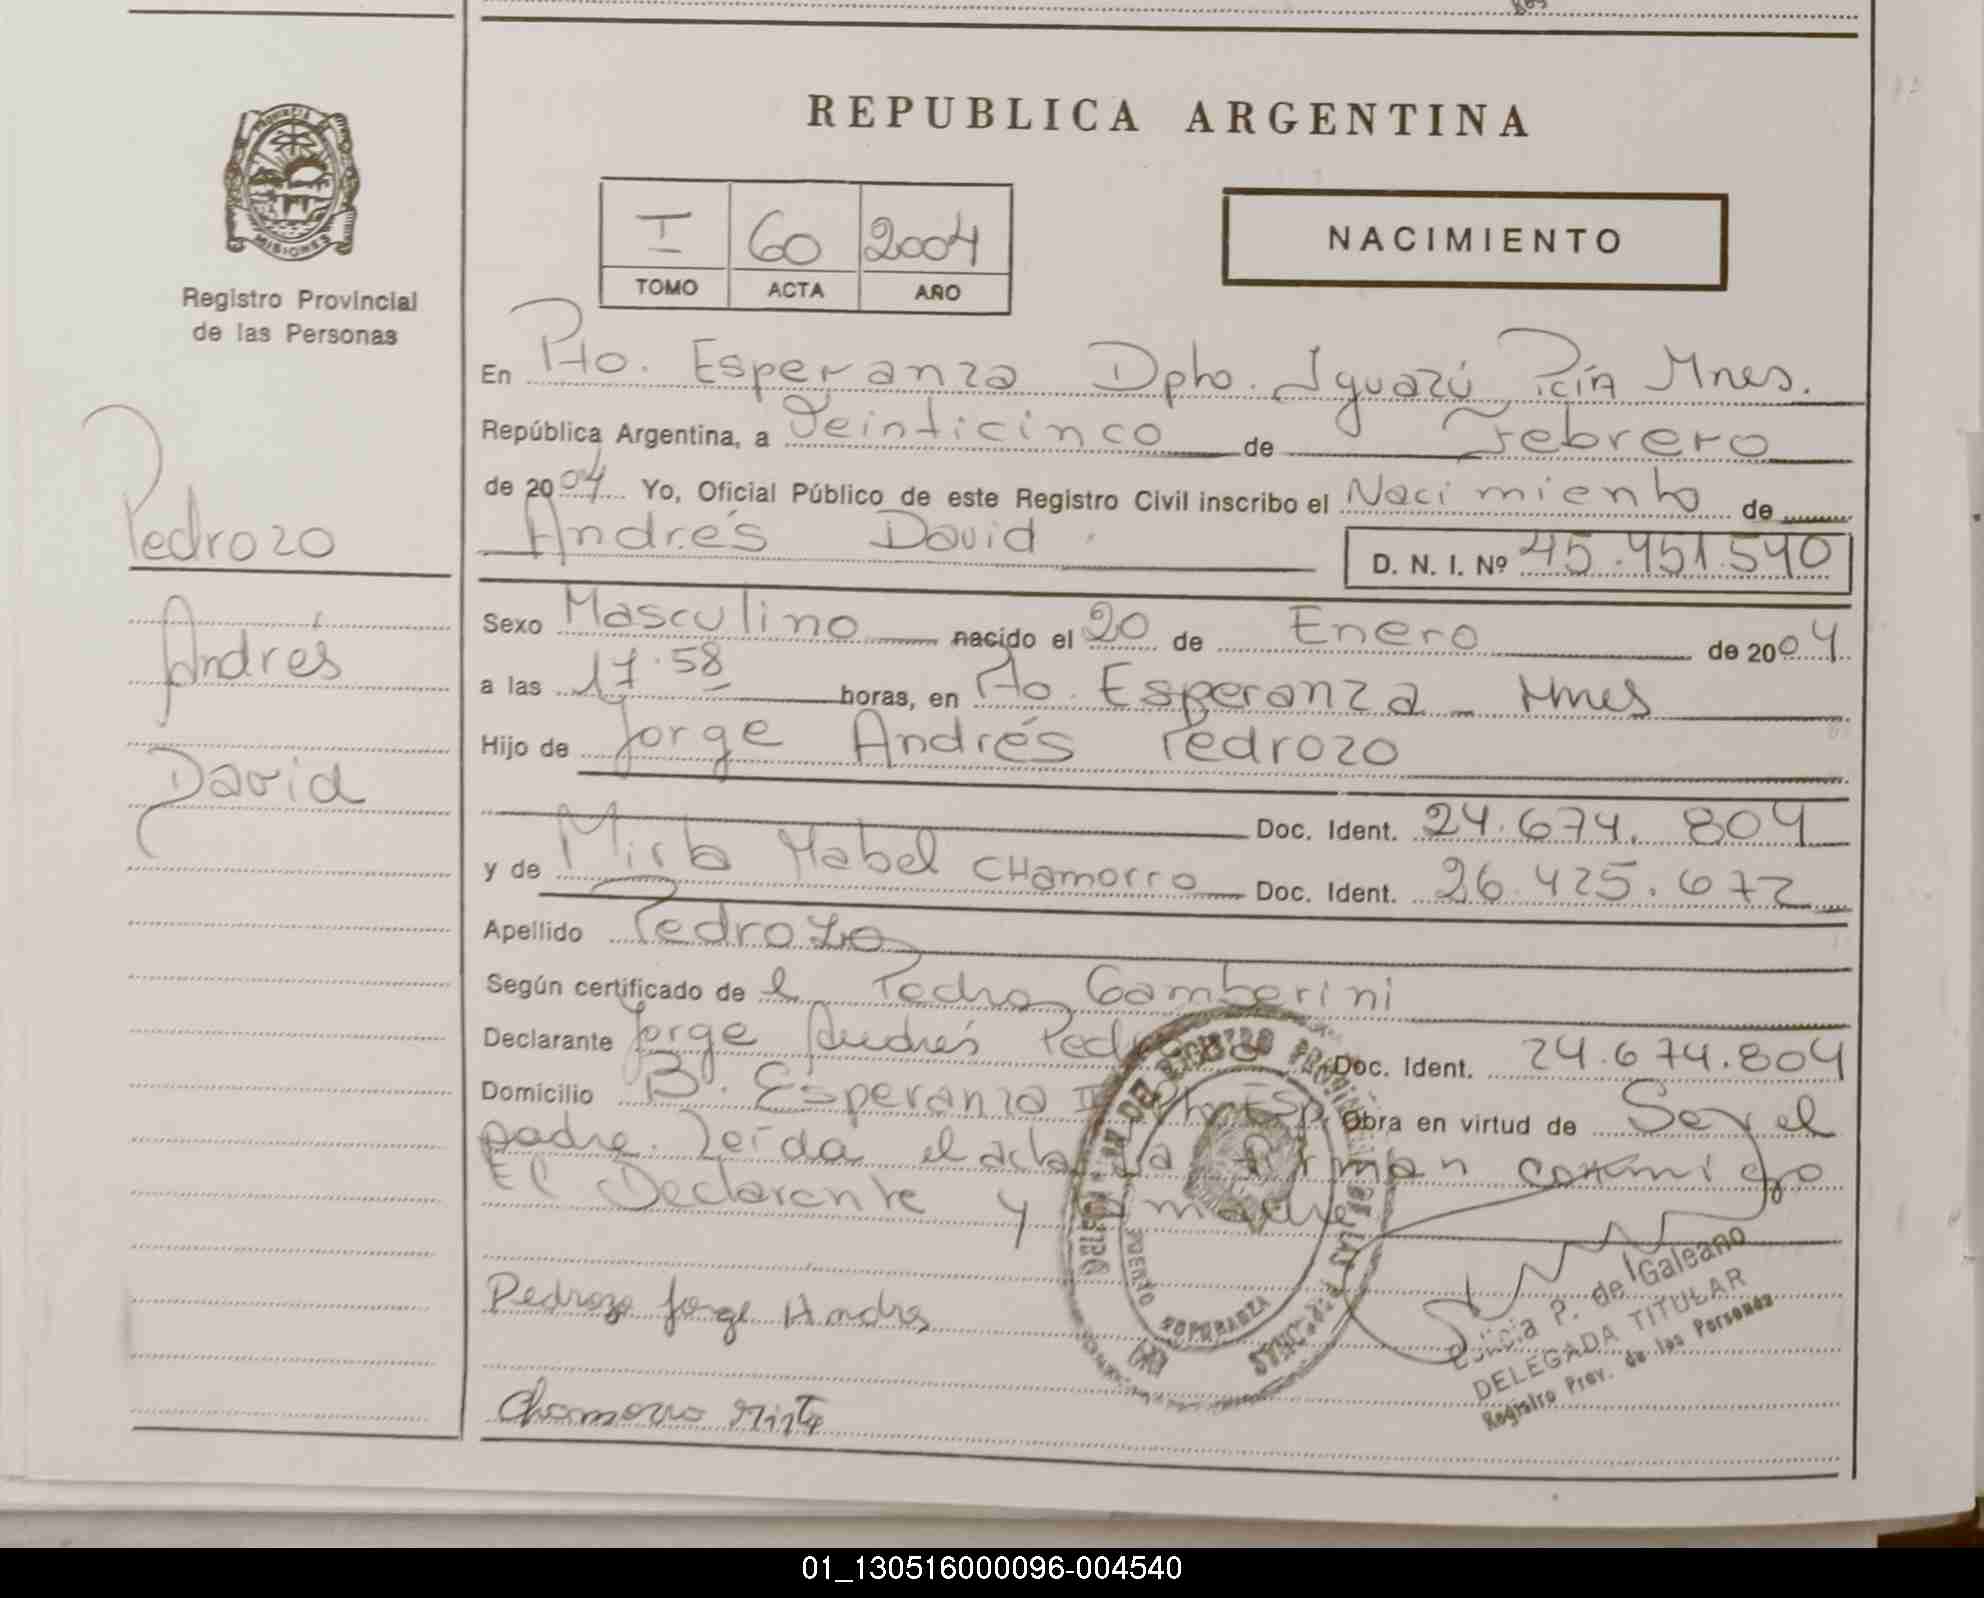 REPUBLICA ARGENTINA
PROVINCIA DE
MISIONES
Registro Provincial
de las Personas
I 60 2004
TOMO ACTA AÑO
NACIMIENTO
En Pto. Esperanza Dpto. Iguazú Pcia Mnes.
República Argentina, a Veinticinco de Febrero
de 2004 Yo, Oficial Público de este Registro Civil inscribo el Nacimiento de
Andrés David
D. N. I. Nº 45.451.540
Pedrozo
Andrés
David
Sexo Masculino nacido el 20 de Enero de 2004
a las 17.58 horas, en Pto. Esperanza - Mnes
Hijo de Jorge Andrés Pedrozo
Doc. Ident. 24.674.804
y de Mirta Mabel CHamorro Doc. Ident. 26.425.672
Apellido Pedrozo
Según certificado de Pedro Gamberini
Declarante Jorge Andrés Pedrozo Doc. Ident. 24.674.804
Domicilio B. Esperanza II Pto Esp. Obra en virtud de Ser el
padre. Leída el acta la firman conmigo
El Declarante y la madre
Pedrozo Jorge Andres
Chamorro Mirta
PUERTO ESPERANZA
MISIONES
P. de Galeano
DELEGADA TITULAR
Registro Prov. de las Personas
01_130516000096-004540